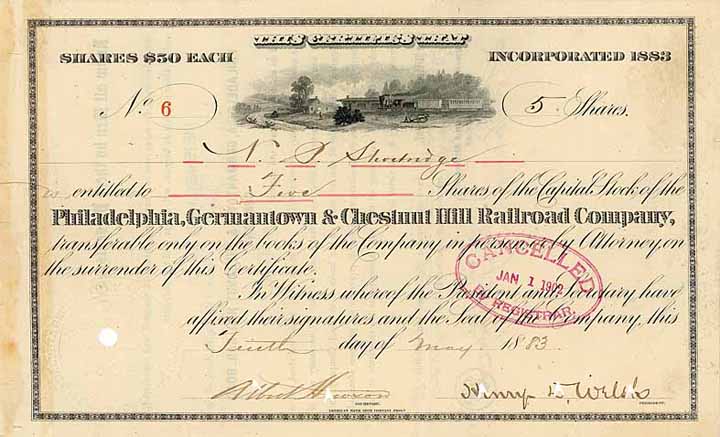 THIS CERTIFIES THAT
SHARES $50 EACH INCORPORATED 1883
No 6 5 Shares.
N. P. Shortridge
is entitled to Five Shares of the Capital Stock of the
Philadelphia, Germantown & Chestnut Hill Railroad Company,
transferable only on the books of the Company in person or by Attorney on
the surrender of this Certificate.
CANCELLED
JAN 1 1902
REGISTRAR
In Witness whereof the President and Secretary have
affixed their signatures and the Seal of the Company, this
Tenth day of May 1883.
Albert Hewson Henry D. Welsh
SECRETARY. PRESIDENT.
AMERICAN BANK NOTE COMPANY PHILA.